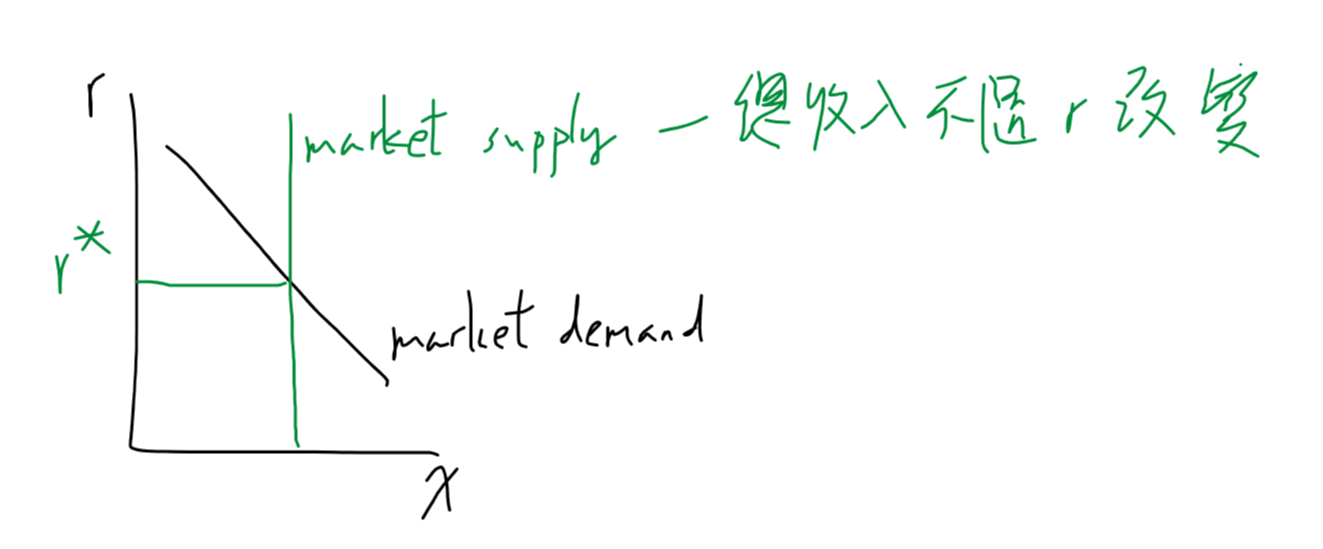 r
market supply — 總收入不隨 r 改變
r*
market demand
x